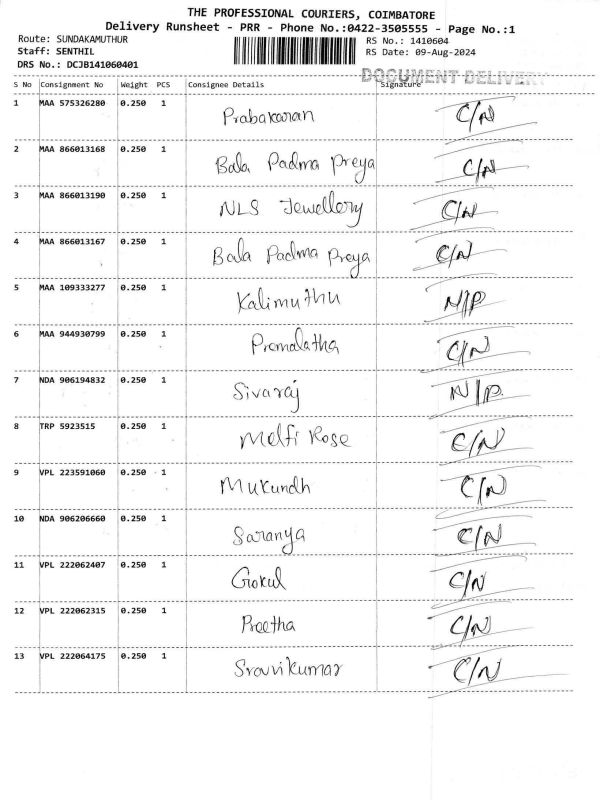 THE PROFESSIONAL COURIERS, COIMBATORE
Delivery Runsheet - PRR - Phone No.:0422-3505555 - Page No.:1
Route: SUNDAKAMUTHUR RS No.: 1410604
Staff: SENTHIL RS Date: 09-Aug-2024
DRS No.: DCJB141060401
DOCUMENT DELIVERY
S No Consignment No Weight PCS Consignee Details Signature
1 MAA 575326280 0.250 1 Prabakaran C/N
2 MAA 866013168 0.250 1 Bala Padma Preya C/N
3 MAA 866013190 0.250 1 NLS Jewellery C/N
4 MAA 866013167 0.250 1 Bala Padma Preya C/N
5 MAA 109333277 0.250 1 Kalimuthu N/P
6 MAA 944930799 0.250 1 Premalatha C/N
7 NDA 906194832 0.250 1 Sivaraj N/P.
8 TRP 5923515 0.250 1 Melfi Rose C/N
9 VPL 223591060 0.250 1 Mukundh C/N
10 NDA 906206660 0.250 1 Saranya C/N
11 VPL 222062407 0.250 1 Gokul C/N
12 VPL 222062315 0.250 1 Preetha C/N
13 VPL 222064175 0.250 1 Sravikumar C/N